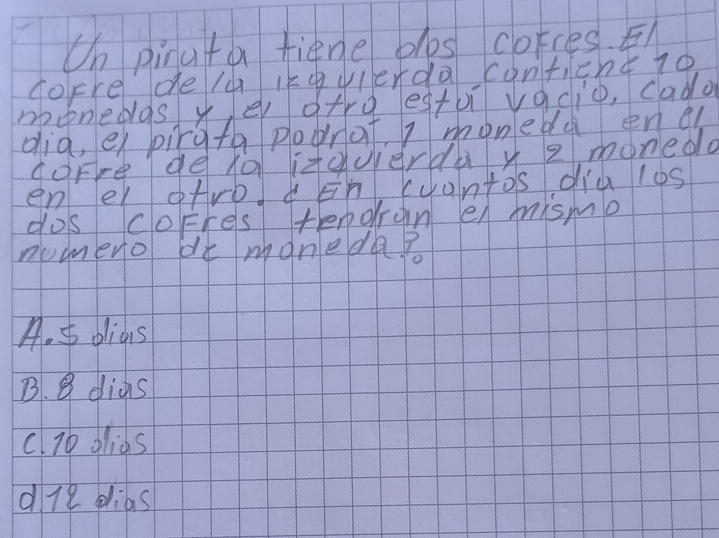 Un pirata tiene dos cofres. El
cofre de la izquierda contiene 10
monedas y el otro esta vacio, cada
dia, el pirata podra 1 moneda en el
cofre de la izquierda y 2 moneda
en el otro. ¿En cuantos dia los
dos cofres tendran el mismo
numero de moneda?
A. 5 dias
B. 8 dias
C. 10 dias
d. 12 dias